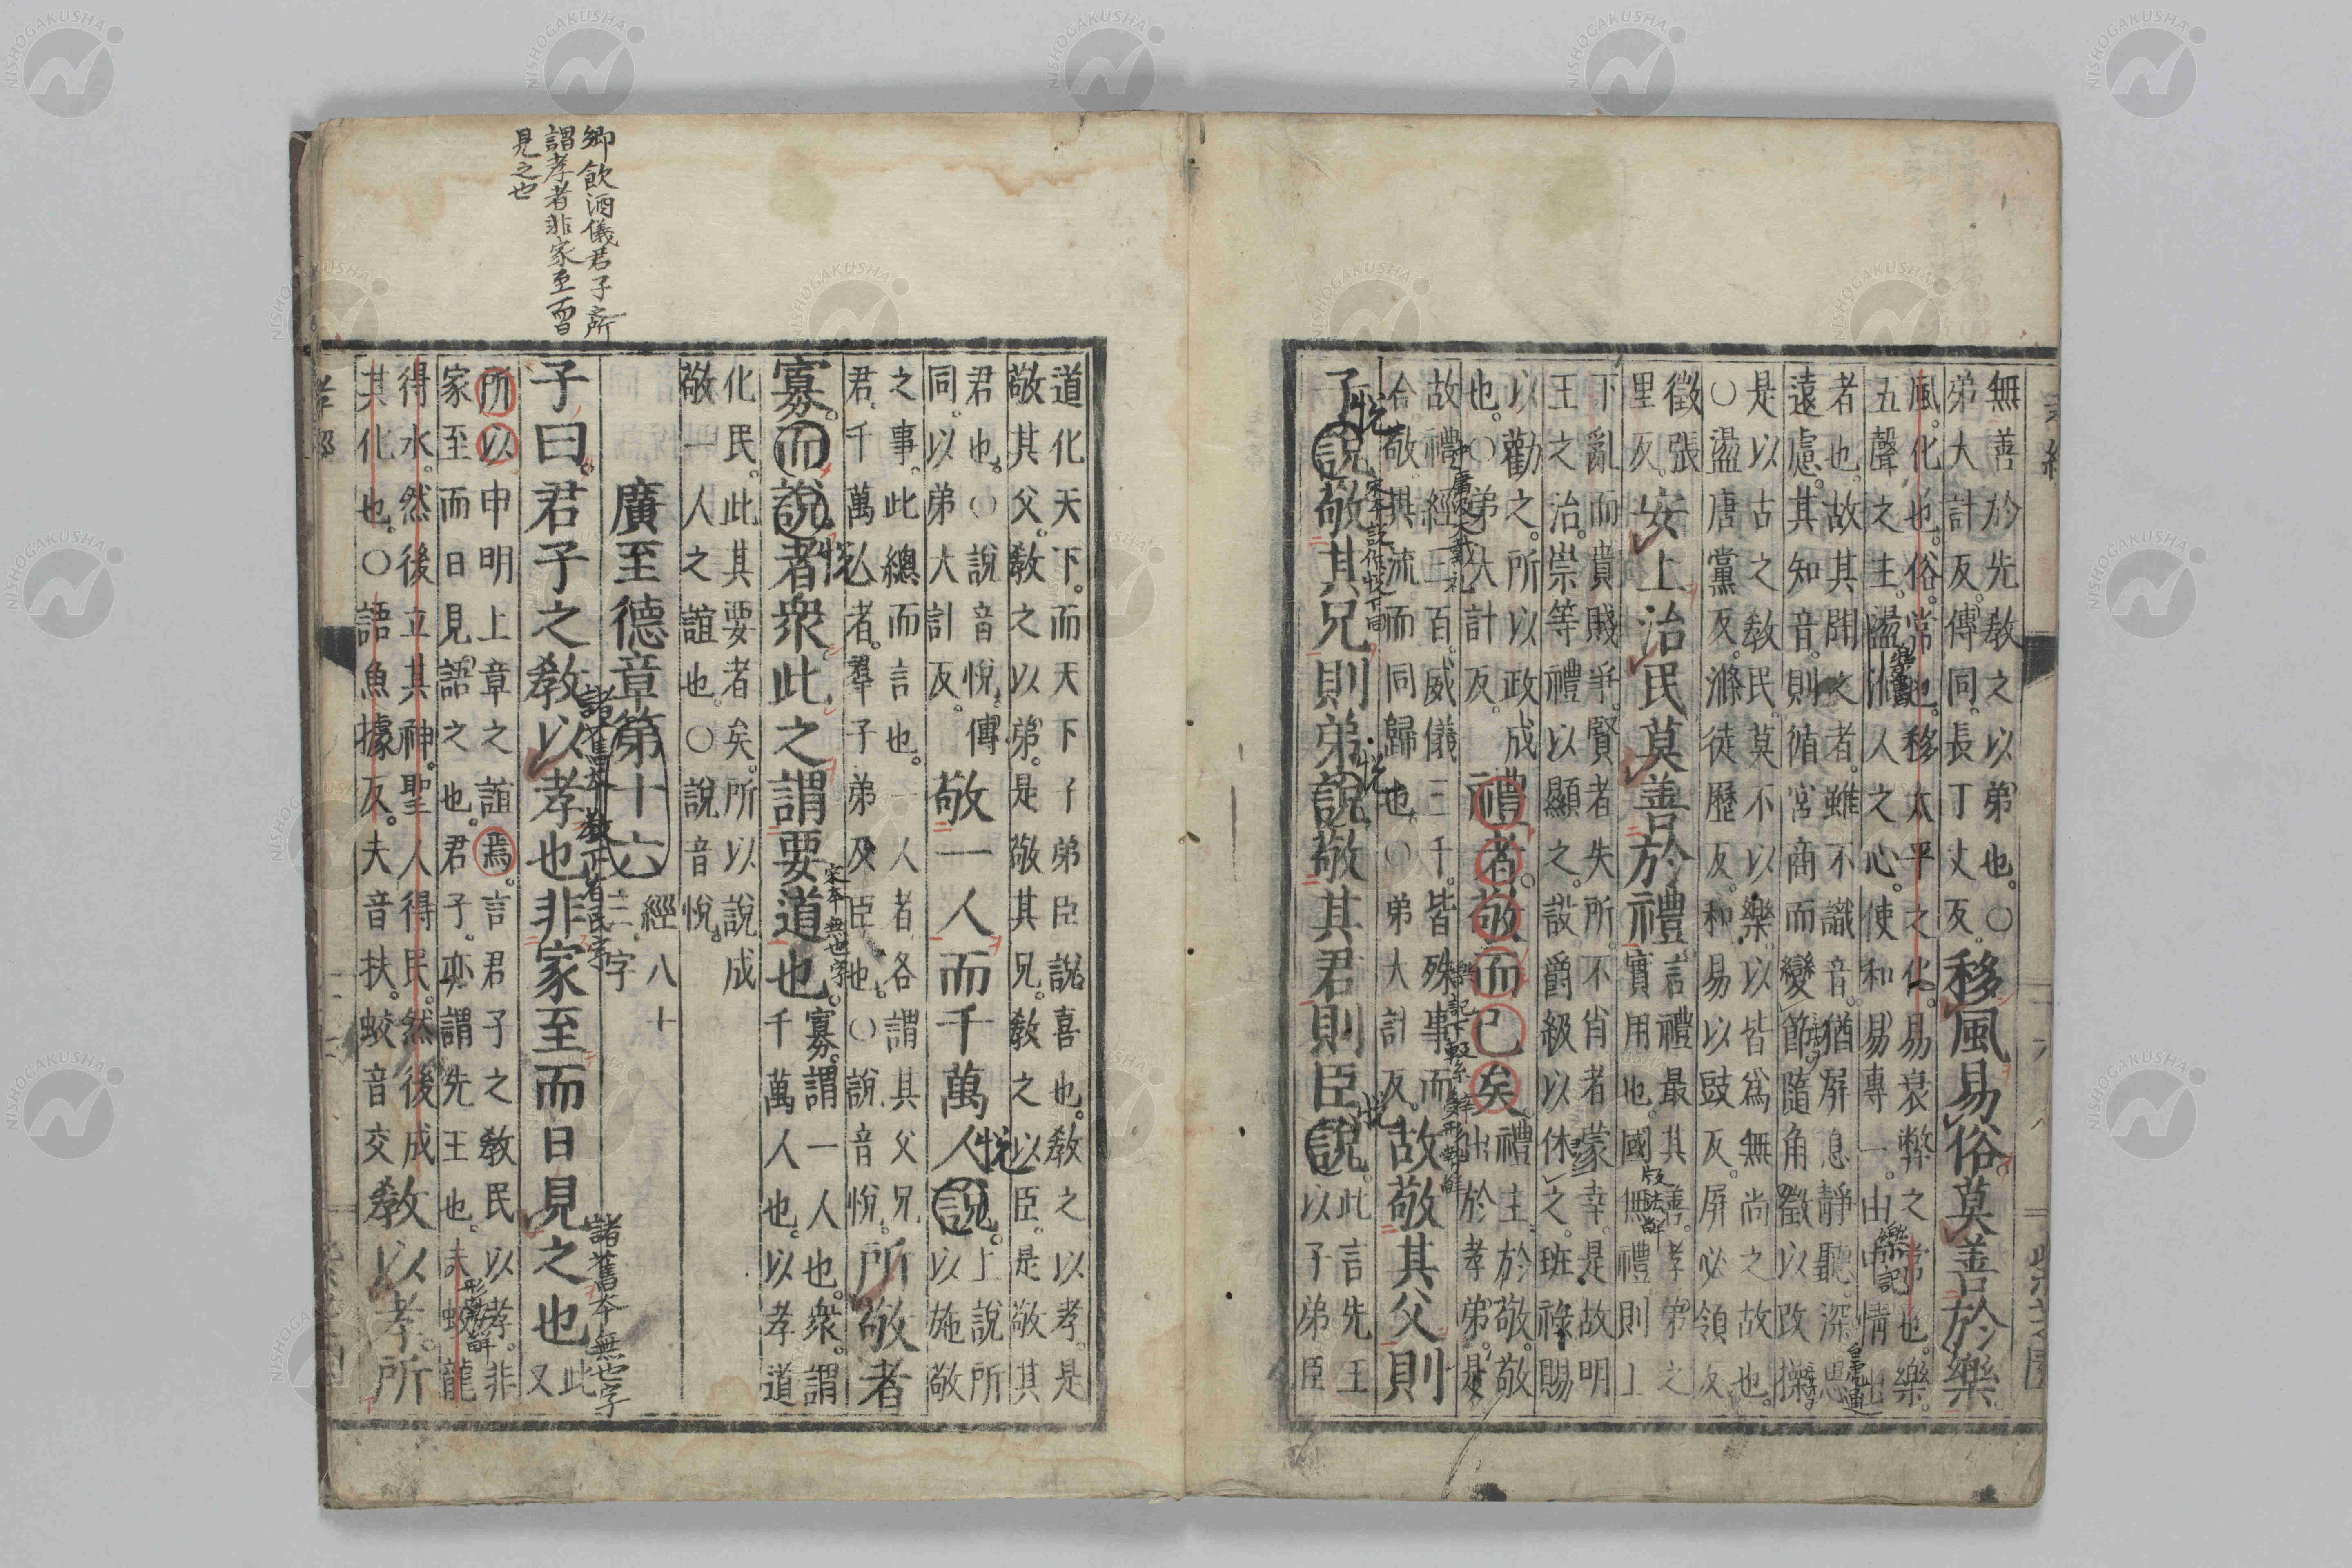 無善於先敎之以弟也。○
弟大計反。傳同。長丁丈反。
移風易俗。莫善於樂
風。化也。俗。常也。移太平之化。易衰弊之常也。樂。
五聲之主。盪滌人之心。使和易專一。由中情出
樂記
者也。故其聞之者。雖不識音。猶屏息靜聽。深思
遠慮。其知音。則循宮商而變節。隨角徵以改操
是以古之敎民。莫不以樂。以皆爲無尚之故也。
○盪唐黨反。滌徒歷反。和易以豉反。屏必領反
徵張
里反。
安上治民莫善於禮。
言禮最其善。孝弟之
實用也。國無禮。則上
版法解
下亂而貴賤爭。賢者失所。不肖者蒙幸。是故明
王之治。崇等禮以顯之。設爵級以休之。班祿賜
以勸之。所以政成
也。○弟大計反。
禮者。敬而已矣
禮主於敬。敬
出於孝弟。是
故禮經三百。威儀三千。皆殊事而
合敬。異流而同歸也。○弟大計反。
故敬其父則
子說敬其兄則弟說敬其君則臣說。
悅
宋本說作悅下同
悅
悅
此言先王
以子弟臣
道化天下。而天下子弟臣說喜也。敎之以孝。是
敬其父。敎之以弟。是敬其兄。敎之以臣。是敬其
君也。○說音悅。傳
同。以弟大計反。
敬一人而千萬人說。
悅
上說所
以施敬
之事。此總而言也。一人者各謂其父兄
君。千萬人者。羣子弟及臣也。○說音悅。
所敬者
寡。而說者衆此之謂要道也。
悅
宋本無也字
寡。謂一人也。衆。謂
千萬人也。以孝道
化民。此其要者矣。所以說成
敬一人之誼也。○說音悅。
廣至德章第十六
經八十
三字
子曰。君子之敎以孝也非家至而日見之也
諸舊本敎下有民字
諸舊本無也字
此
又
鄉飲酒儀君子之所
謂孝者非家至而日
見之也
所以申明上章之誼焉。言君子之敎民以孝。非
家至而日見語之也。君子。亦謂先王也。夫蛟龍
形勢解
得水。然後立其神。聖人得民。然後成
其化也。○語魚據反。夫音扶。蛟音交
敎以孝。所
孝經
NISHOGAKUSHA